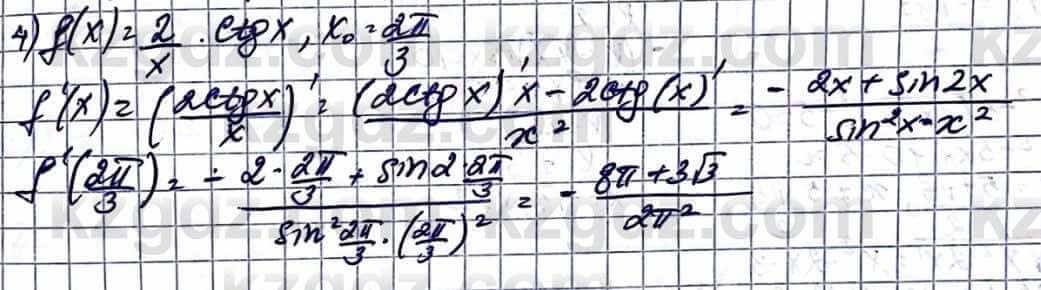 4) f(x) = 2/x · ctg x, x₀ = 2π/3
f'(x) = (2ctg x/x)' = ((2ctg x)'x - 2ctg(x)')/x² = - (2x + sin2x)/(sin²x · x²)
f'(2π/3) = - (2 · 2π/3 + sin2 · 2π/3)/(sin² 2π/3 · (2π/3)²) = - (8π + 3√3)/(2π²)
kzgdz.com